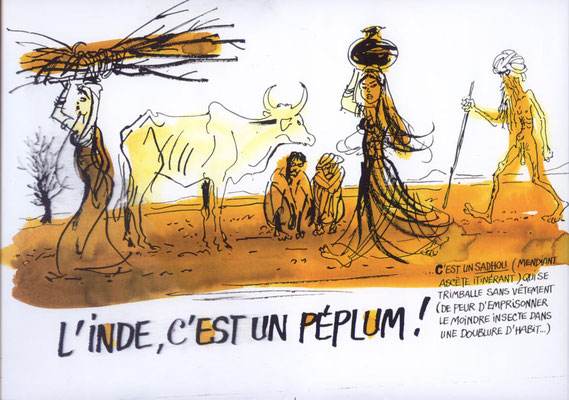 ...C'EST UN SADHOU (MENDIANT
ASCÈTE ITINÉRANT) QUI SE
TRIMBALLE SANS VÊTEMENT
(DE PEUR D'EMPRISONNER
LE MOINDRE INSECTE DANS
UNE DOUBLURE D'HABIT...)
L'INDE, C'EST UN PÉPLUM !